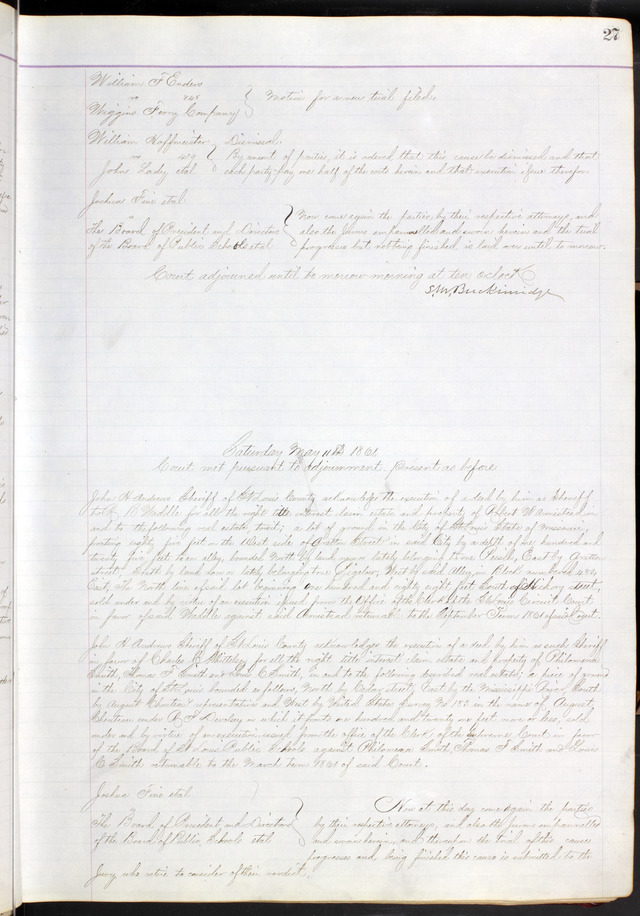 27
William F Enders
vs 745
Wiggins Ferry Company
Motion for a new trial filed.
William Hoffmeister
vs 479
John Eady, etal
Dismissed.
By consent of parties, it is ordered that this cause be dismissed and that
each party pay one half of the costs herein and that execution issue therefor.
Joshua Fine etal
vs
The Board of President and Directors
of the Board of Public Schools etal
Now come again the parties, by their respective attorneys, and
also the jurors empannelled and sworn herein and the trial
progresses but not being finished is laid over until to morrow.
Court adjourned until to morrow morning at ten oclock
Saturday May 11th 1861
Court met pursuant to adjournment. Present as before
John H Andrews Sheriff of St Louis County acknowledges the execution of a deed by him as Sheriff
to B Waddle for all the right title interest claim estate and property of Robert W Armistead in
and to the following real estate to wit; a lot of ground in the City of St Louis State of Missouri,
fronting eighty five feet on the West side of Street in said City by a depth of one hundred and
twenty five feet to an alley, bounded North by land now or lately belonging to East by
Street, South by land now or lately belonging to West by said Alley in Block numbered
East, the North line of said lot beginning one hundred and eighty eight feet South of street
sold under and by virtue of an execution issued from the Office of the Clerk of the St Louis Circuit Court
in favor of said Waddle against said Armistead returnable to the September Term 1861 of said Court.
John H Andrews Sheriff of St Louis County acknowledges the execution of a deed by him as such Sheriff
in favor of Charles B for all the right title interest claim estate and property of Philomena
Smith, Thomas F Smith and Louis C Smith, in and to the following described real estate; a piece of ground
in the City of St Louis bounded as follows, North by Cedar street, East by the Mississippi River, South
by August Chouteau representatives and West by United States Survey No in the name of August
Chouteau under on which it fronts one hundred and twenty one feet more or less, sold
under and by virtue of an execution issued from the office of the Clerk of the Supreme Court in favor
of the Board of St Louis Public Schools against Philomena Smith, Thomas F Smith and Louis
C Smith returnable to the March term 1861 of said Court.
Joshua Fine etal
vs
The Board of President and Directors
of the Board of Public Schools etal
Now at this day come again the parties
by their respective attorneys, and also the jurors empannelled
and sworn herein, and thereupon the trial of this cause
progresses and being finished this cause is submitted to the
Jury who retire to consider of their verdict.